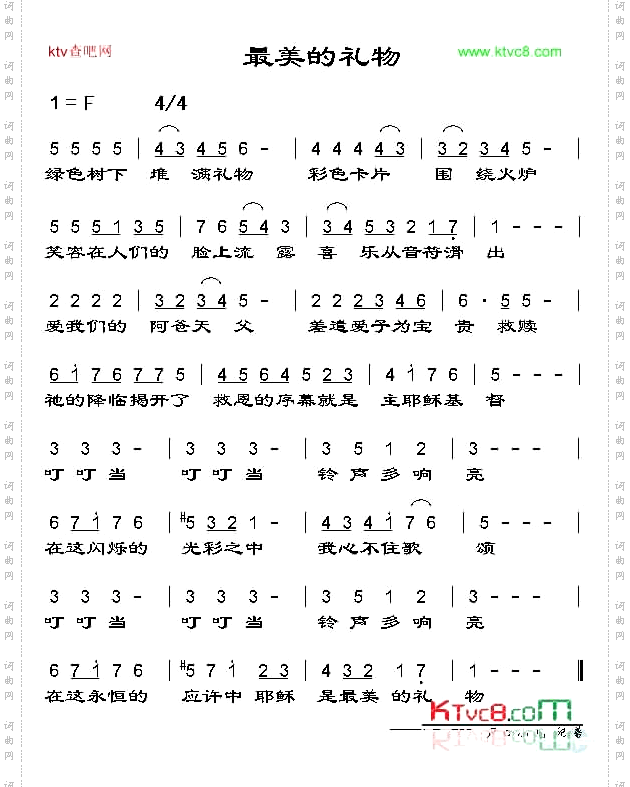 ktv查吧网
最美的礼物
www.ktvc8.com
1 = F 4/4
5 5 5 5 | 4 3 4 5 6 - | 4 4 4 4 3 | 3 2 3 4 5 - |
绿色树下 堆 满礼物 彩色卡片 围 绕火炉
5 5 5 1 3 5 | 7 6 5 4 3 | 3 4 5 3 2 1 7 | 1 - - - |
笑容在人们的 脸上流 露 喜 乐从音符滑 出
2 2 2 2 | 3 2 3 4 5 - | 2 2 2 3 4 6 | 6 · 5 5 - |
爱我们的 阿爸天 父 差遣爱子为宝 贵 救赎
6 1 7 6 7 7 5 | 4 5 6 4 5 2 3 | 4 1 7 6 | 5 - - - |
祂的降临揭开了 救恩的序幕就是 主耶稣基 督
3 3 3 - | 3 3 3 - | 3 5 1 2 | 3 - - - |
叮 叮 当 叮 叮 当 铃 声 多 响 亮
6 7 1 7 6 | #5 3 2 1 - | 4 3 4 1 7 6 | 5 - - - |
在这闪烁的 光彩之中 我心不住歌 颂
3 3 3 - | 3 3 3 - | 3 5 1 2 | 3 - - - |
叮 叮 当 叮 叮 当 铃 声 多 响 亮
6 7 1 7 6 | #5 7 1 2 3 | 4 3 2 1 7 | 1 - - - ‖
在这永恒的 应许中 耶稣 是最美 的礼 物
KTvc8.com